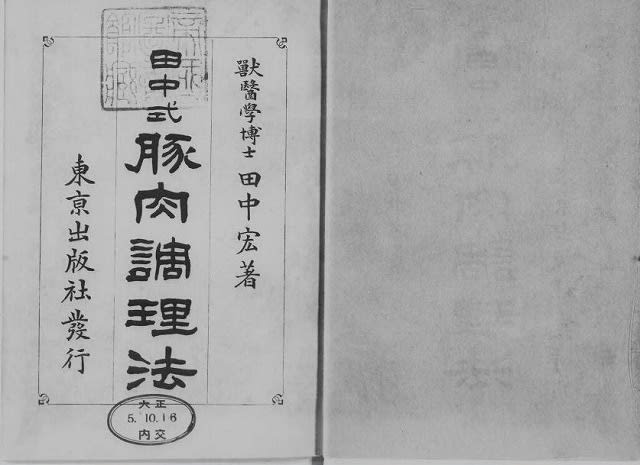 獸醫學博士 田中宏著
田中式
豚肉調理法
東京出版社發行
大正
5.10.16
内交